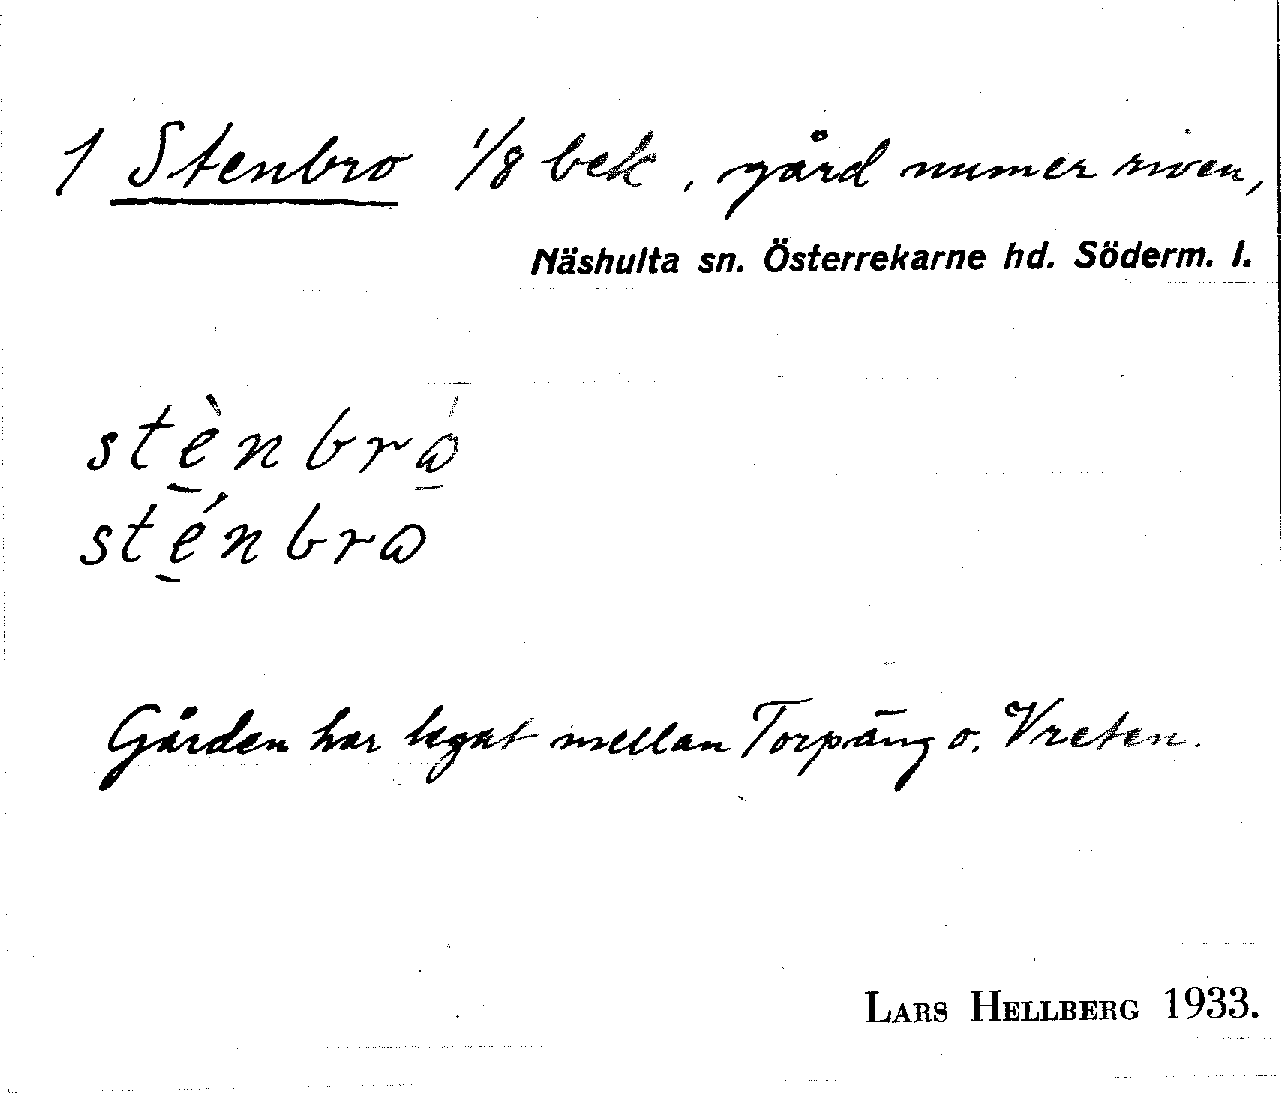 1 Stenbro 1/8 bek, gård numer riven,
Näshulta sn. Österrekarne hd. Söderm. l.
stè̱nbrώ̱
sté̱nbrω
Gården har legat mellan Torpäng o. Vreten.
LARS HELLBERG 1933.